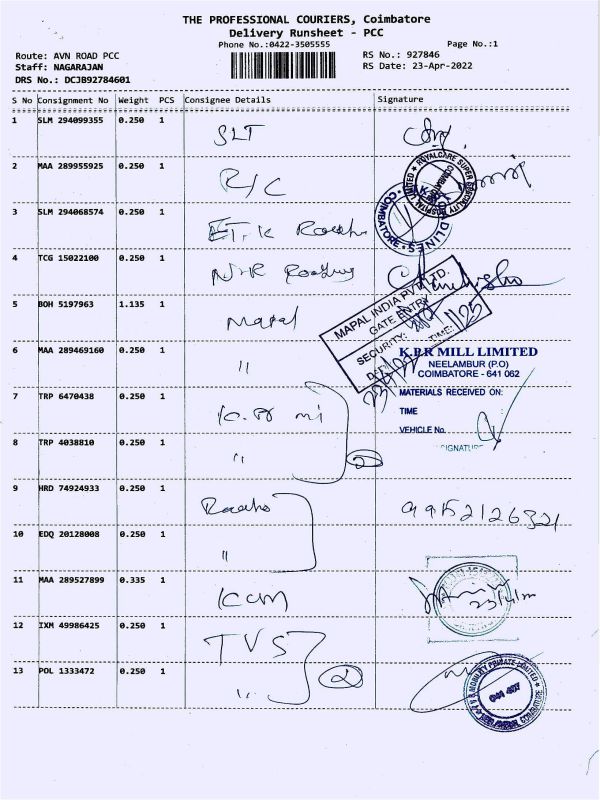 THE PROFESSIONAL COURIERS, Coimbatore
Delivery Runsheet - PCC
Phone No.:0422-3505555 Page No.:1
Route: AVN ROAD PCC RS No.: 927846
Staff: NAGARAJAN RS Date: 23-Apr-2022
DRS No.: DCJB92784601
S No Consignment No Weight PCS Consignee Details Signature
1 SLM 294099355 0.250 1 SLT
2 MAA 289955925 0.250 1 R/C
ROYALCARE SUPER SPECIALITY HOSPITAL LIMITED
COIMBATORE
3 SLM 294068574 0.250 1
4 TCG 15022100 0.250 1
5 BOH 5197963 1.135 1 Mapal
MAPAL INDIA PVT. LTD.
GATE ENTRY
SECURITY:
TIME: 1125
6 MAA 289469160 0.250 1 "
K.P.R MILL LIMITED
NEELAMBUR (P.O)
COIMBATORE - 641 062
7 TRP 6470438 0.250 1
MATERIALS RECEIVED ON:
TIME
VEHICLE No.
SIGNATURE
8 TRP 4038810 0.250 1 " 2
9 HRD 74924933 0.250 1
10 EDQ 20128008 0.250 1 "
11 MAA 289527899 0.335 1
12 IXM 49986425 0.250 1 TVS
13 POL 1333472 0.250 1 " 2